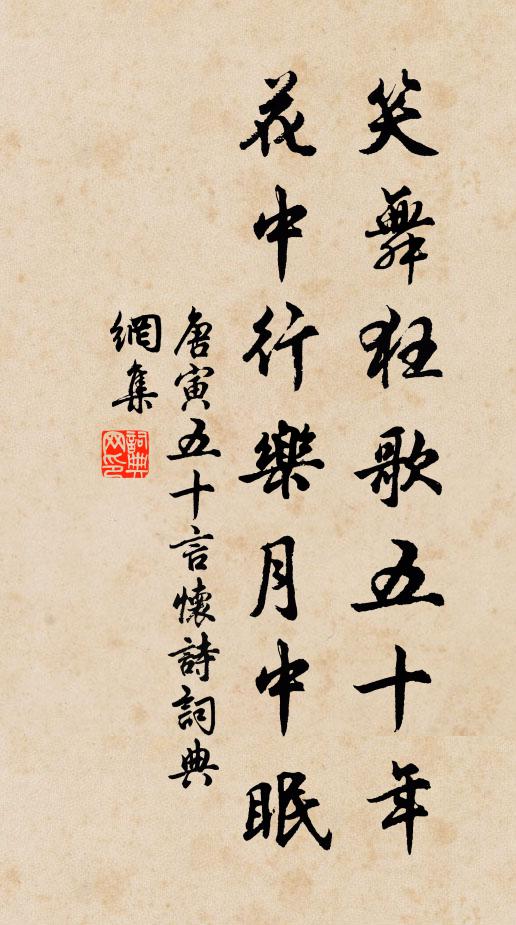 笑舞狂歌五十年
花中行樂月中眠
唐寅五十言懷詩詞典
網集
詞典
网印